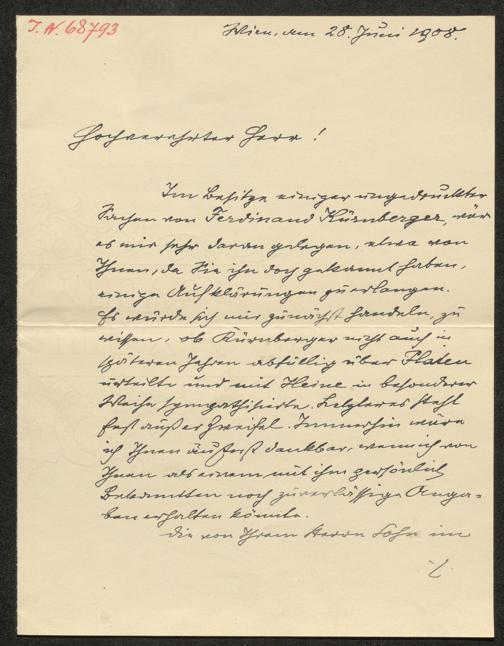 I. N. 68793
Wien, am 28. Juni 1908.
Hochverehrter Herr!
Im Besitze einiger ungedruckter
Sachen von Ferdinand Kürnberger, wär
es mir sehr daran gelegen, etwa von
Ihnen, da Sie ihn doch gekannt haben,
einige Aufklärungen zu erlangen.
Es würde sich mir zunächst handeln, zu
wissen, ob Kürnberger nicht auch in
späteren Jahren abfällig über Platen
urteilte und mit Heine in besonderer
Weise sympathisierte. Letzteres steht
fast außer Zweifel. Immerhin wäre
ich Ihnen äußerst dankbar, wenn ich von
Ihnen als einem mit ihm persönlich
Bekannten noch zuverlässige Anga-
ben erhalten könnte.
Die von Ihrem Herrn Sohn im